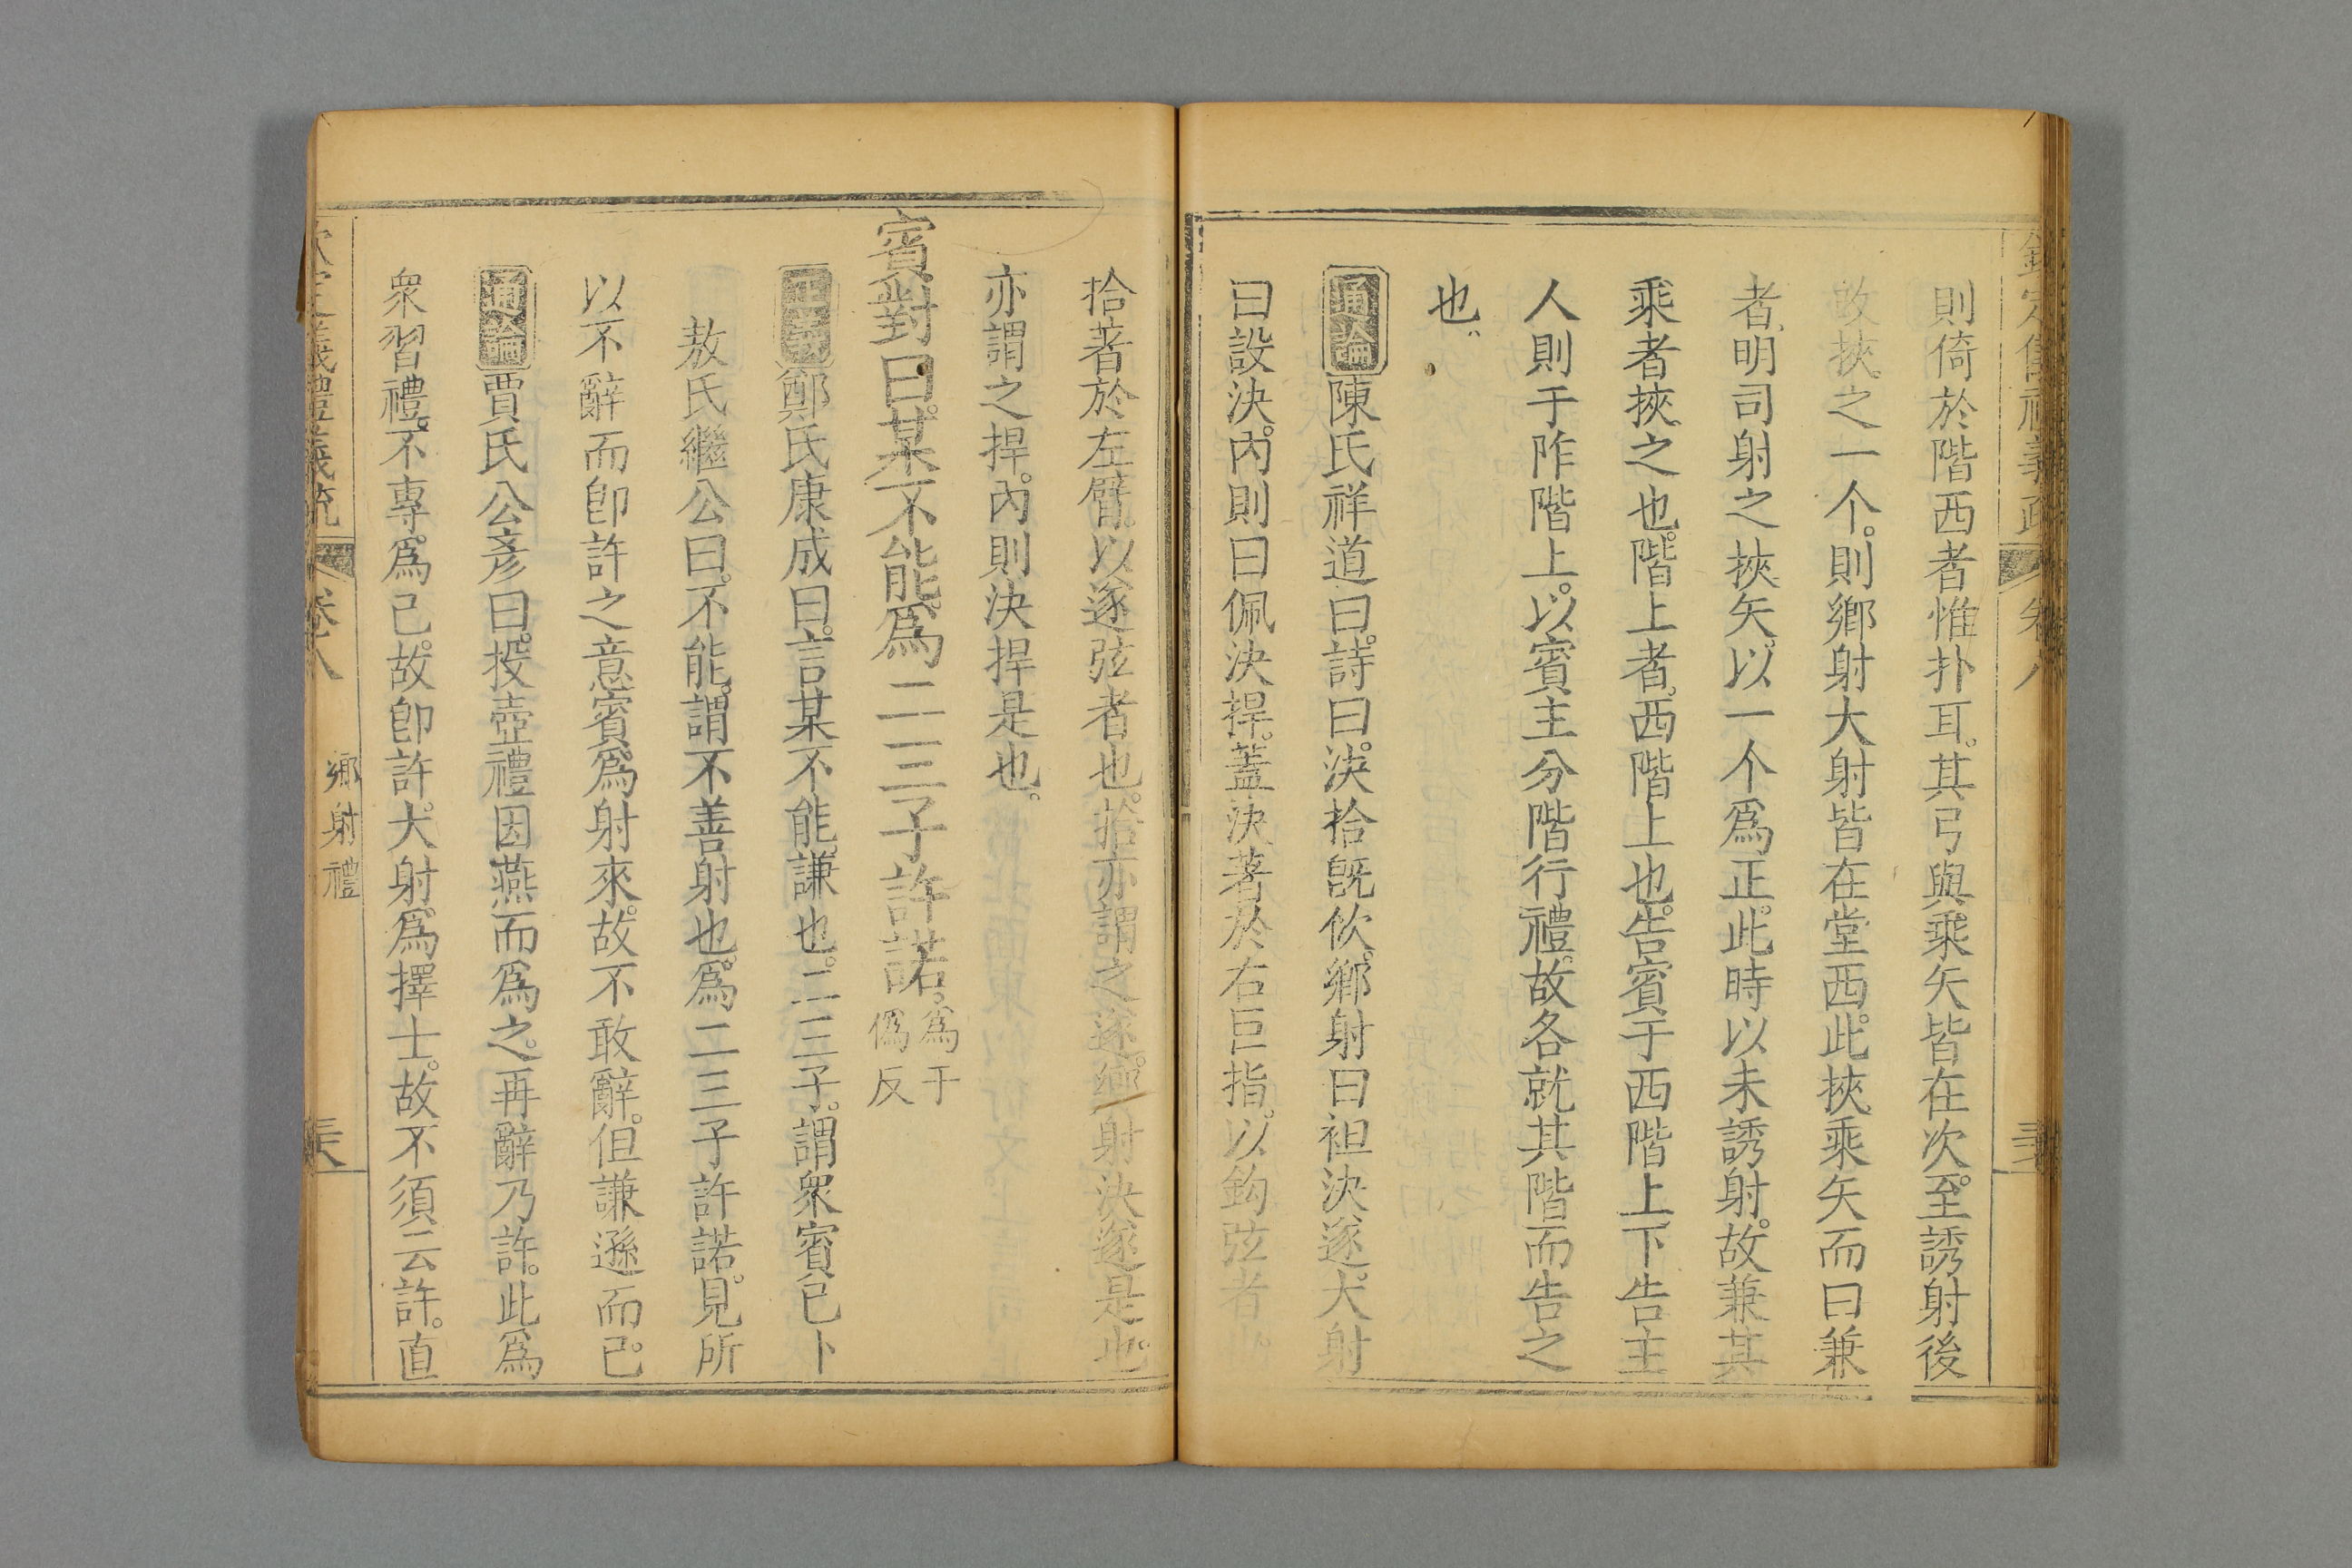 欽定儀禮義疏 卷八
則倚於階西者惟扑耳。其弓與乘矢皆在次。至誘射後
故挾之一个。則鄉射大射皆在堂西。此挾乘矢而曰兼
者明司射之挾矢。以一个爲正。此時以未誘射。故兼其
乘者挾之也。階上者。西階上也。告賓于西階上下告主
人則于阼階上。以賓主分階行禮。故各就其階而告之
也。
通論陳氏祥道曰。詩曰。決拾旣佽。鄉射曰袒決遂。大射
曰設決。內則曰佩決捍。蓋決著於右巨指。以鈎弦者。
拾著於左臂。以遂弦者也。拾亦謂之遂。鄉射決遂是也。
亦謂之捍。內則決捍是也。
賓對曰。某不能。爲二三子許諾。爲于
僞反
正義鄭氏康成曰。言某不能。謙也。二三子。謂衆賓已下
敖氏繼公曰。不能。謂不善射也。爲二三子許諾。見所
以不辭而卽許之意賓爲射來。故不敢辭。但謙遜而已。
通論賈氏公彥曰。投壺禮因燕而爲之。再辭乃許。此爲
衆習禮。不專爲己。故卽許。大射。爲擇士。故不須云許。直
欽定儀禮義疏 卷八 鄉射禮